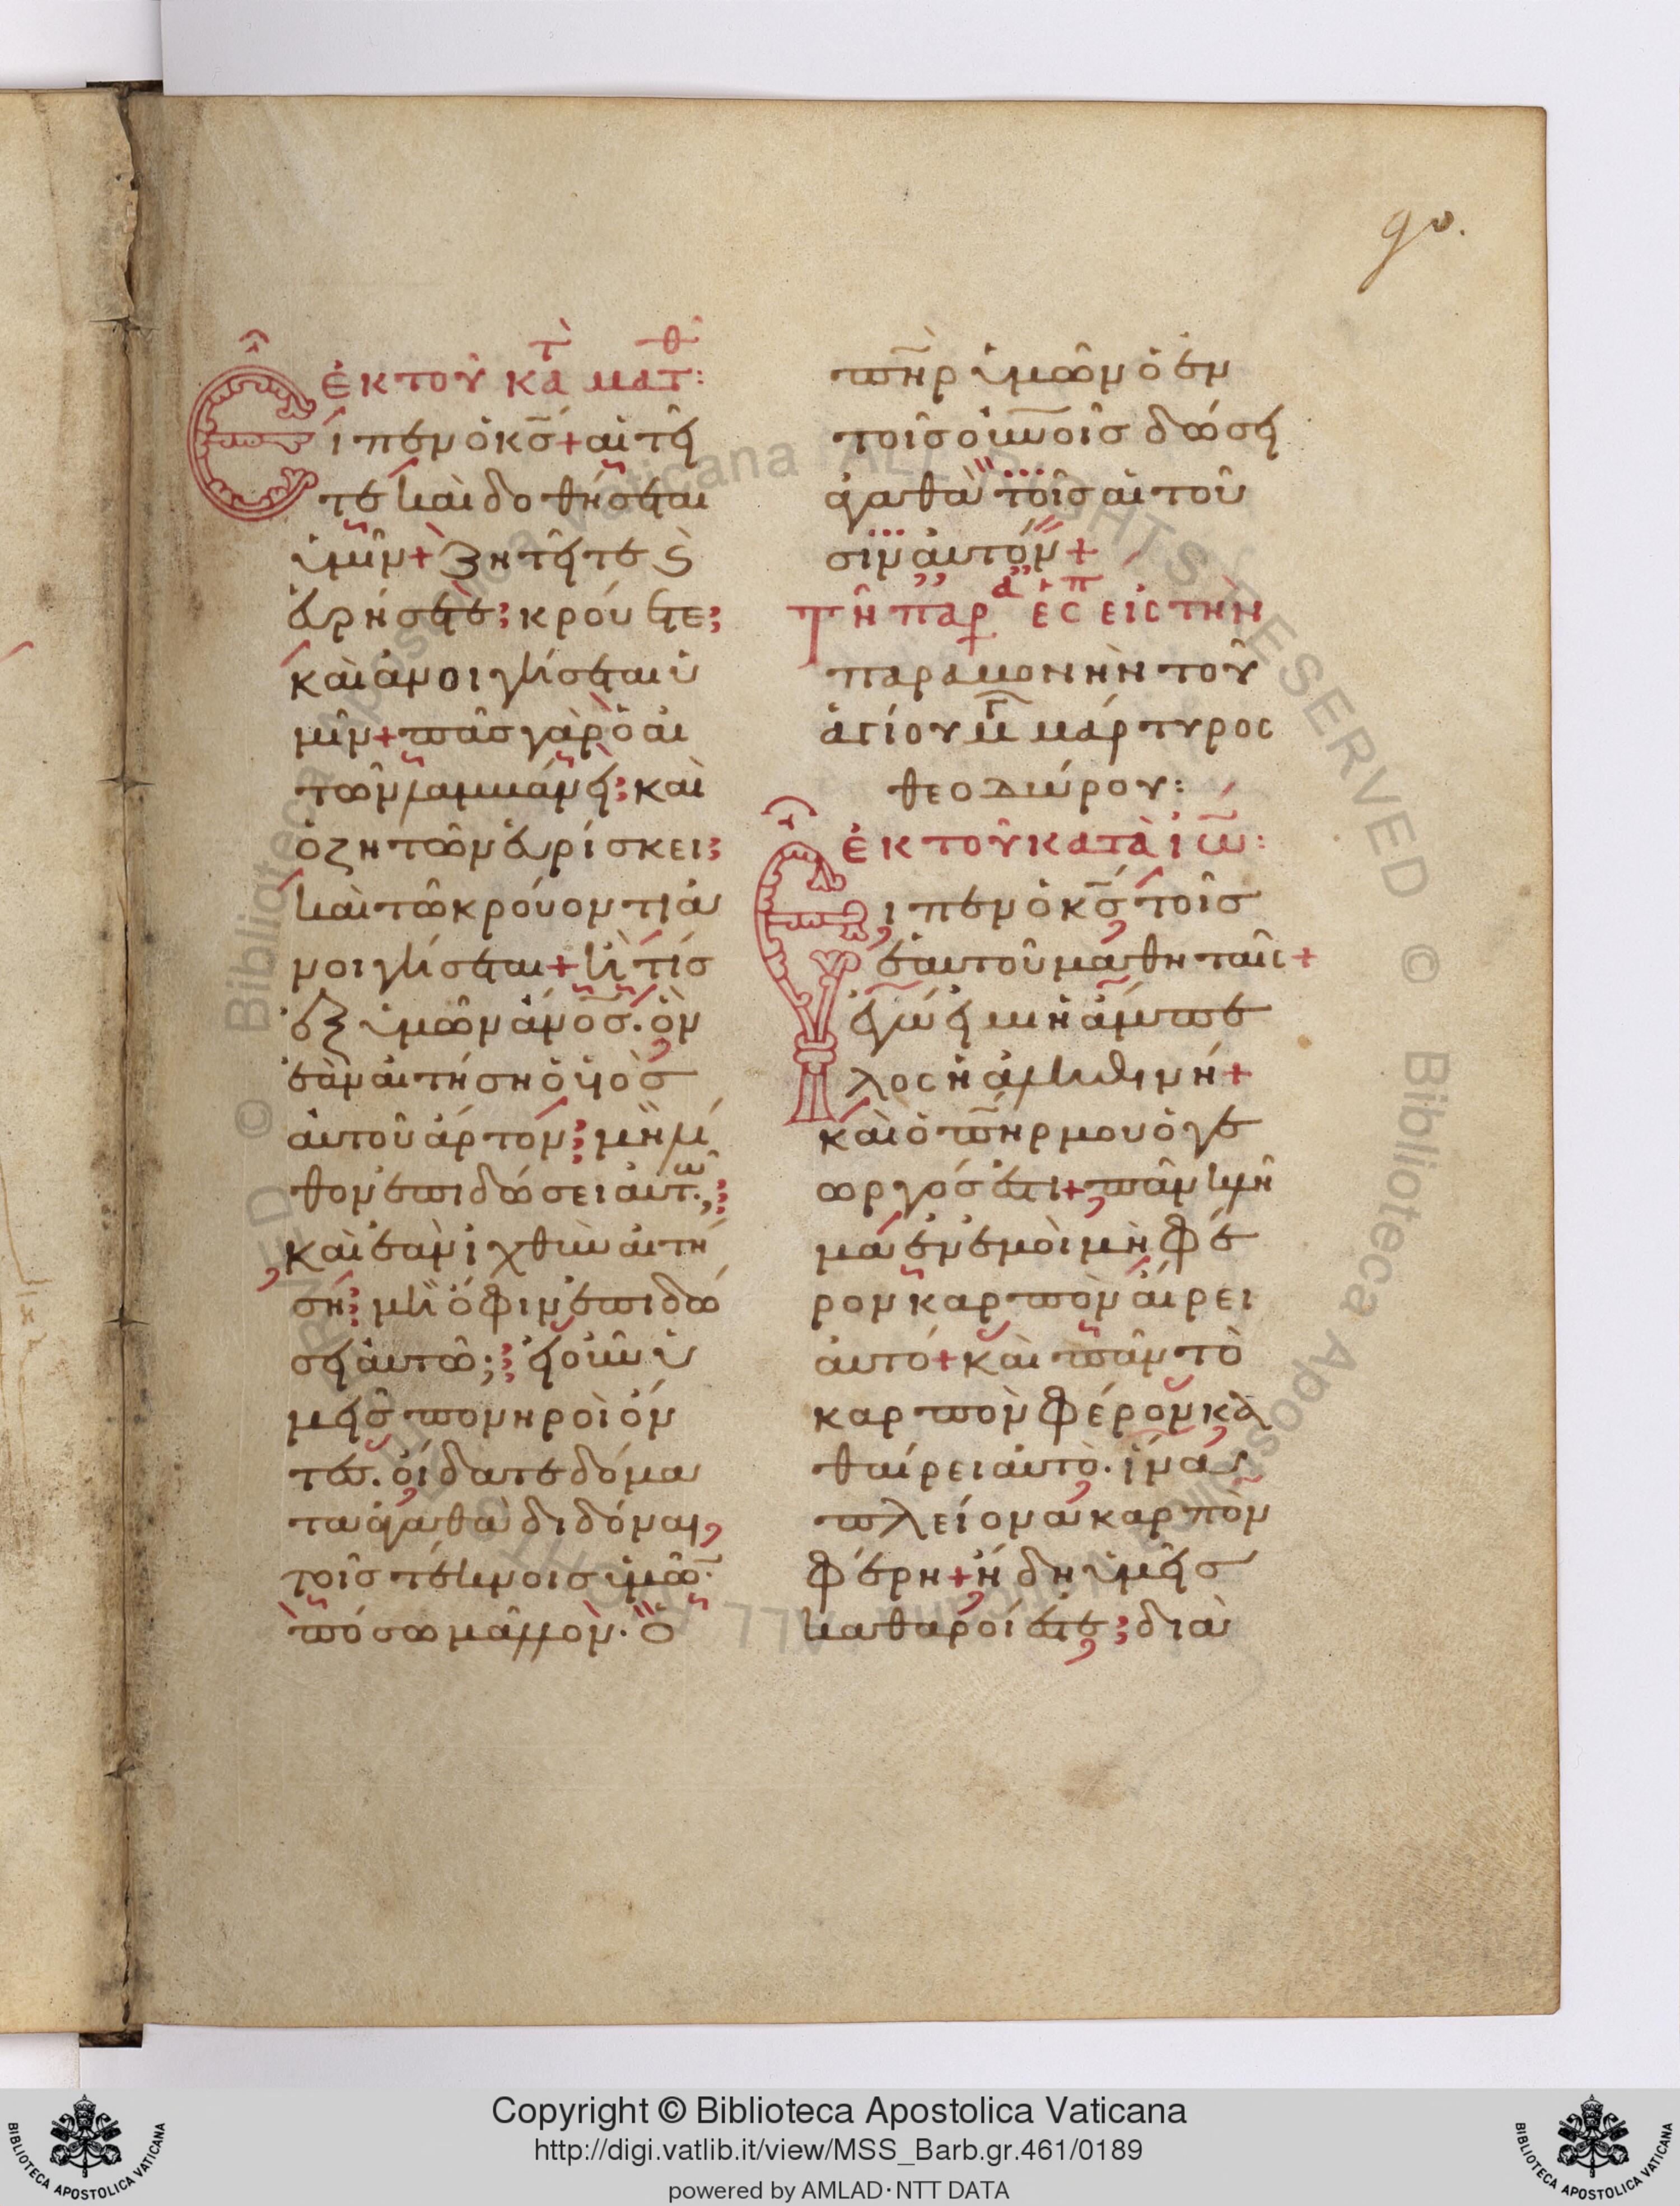 90.
ἐκ τοῦ κατὰ ματθ:
Εἶπεν ὁ κς+ αἰτεῖ
τε καὶ δοθήσεται
ὑμῖν+ ζητεῖτε ϗ
εὑρήσετε; κρούετε;
καὶ ἀνοιγήσεται ὑ
μῖν+ πᾶς γὰρ ὁ αἰ
τῶν λαμβάνει; καὶ
ὁ ζητῶν εὑρίσκει;
καὶ τῶ κρούοντι ἀ
νοιγήσεται+ ἢ τίς
ἐξ ὑμῶν ἀνος. ὃν
ἐὰν αἰτήση ὁ υἱὸς
αὐτοῦ ἄρτον; μὴ λί
θον ἐπιδώσει αὐτῶ;
καὶ ἐὰν ἰχθὺν αἰτή
ση; μὴ ὄφιν ἐπιδώ
σει αὐτῶ; εἰ οὖν ὑ
μεῖς πονηροὶ ὄν
τες. οἴδατε δόμα
τα ἀγαθὰ διδόναι,
τοῖς τέκνοις ὑμῶν.
πόσω μᾶλλον. ὁ
πηρ ὑμῶν ὁ ἐν
τοῖς οὐνοις δώσει
ἀγαθὰ τοῖς αἰτοῦ
σιν αὐτόν+
Τῆ παρ
εἰς τὴν
παραμονὴν τοῦ
ἁγίου μεγ μάρτυρος
θεοδώρου:
ἐκ τοῦ κατὰ ἰω:
Εἶπεν ὁ κς τοῖς
ἑαυτοῦ μαθηταῖς+
ἐγώ εἰμι ἡ ἄμπε
λος ἡ ἀληθινή+
καὶ ὁ πηρ μου ὁ γε
ωργός ἐστι+ πᾶν κλῆ
μα ἐν ἐμοὶ μὴ φέ
ρον καρπὸν αἴρει
αὐτό+ καὶ πᾶν τὸ
καρπὸν φέρον κα
θαίρει αὐτὸ. ἵνα
πλείονα καρπὸν
φέρη+ ἤδη ὑμεῖς
καθαροί ἐστε; διὰ
Copyright © Biblioteca Apostolica Vaticana
http://digi.vatlib.it/view/MSS_Barb.gr.461/0189
powered by AMLAD·NTT DATA
BIBLIOTECA APOSTOLICA VATICANA
BIBLIOTECA APOSTOLICA VATICANA